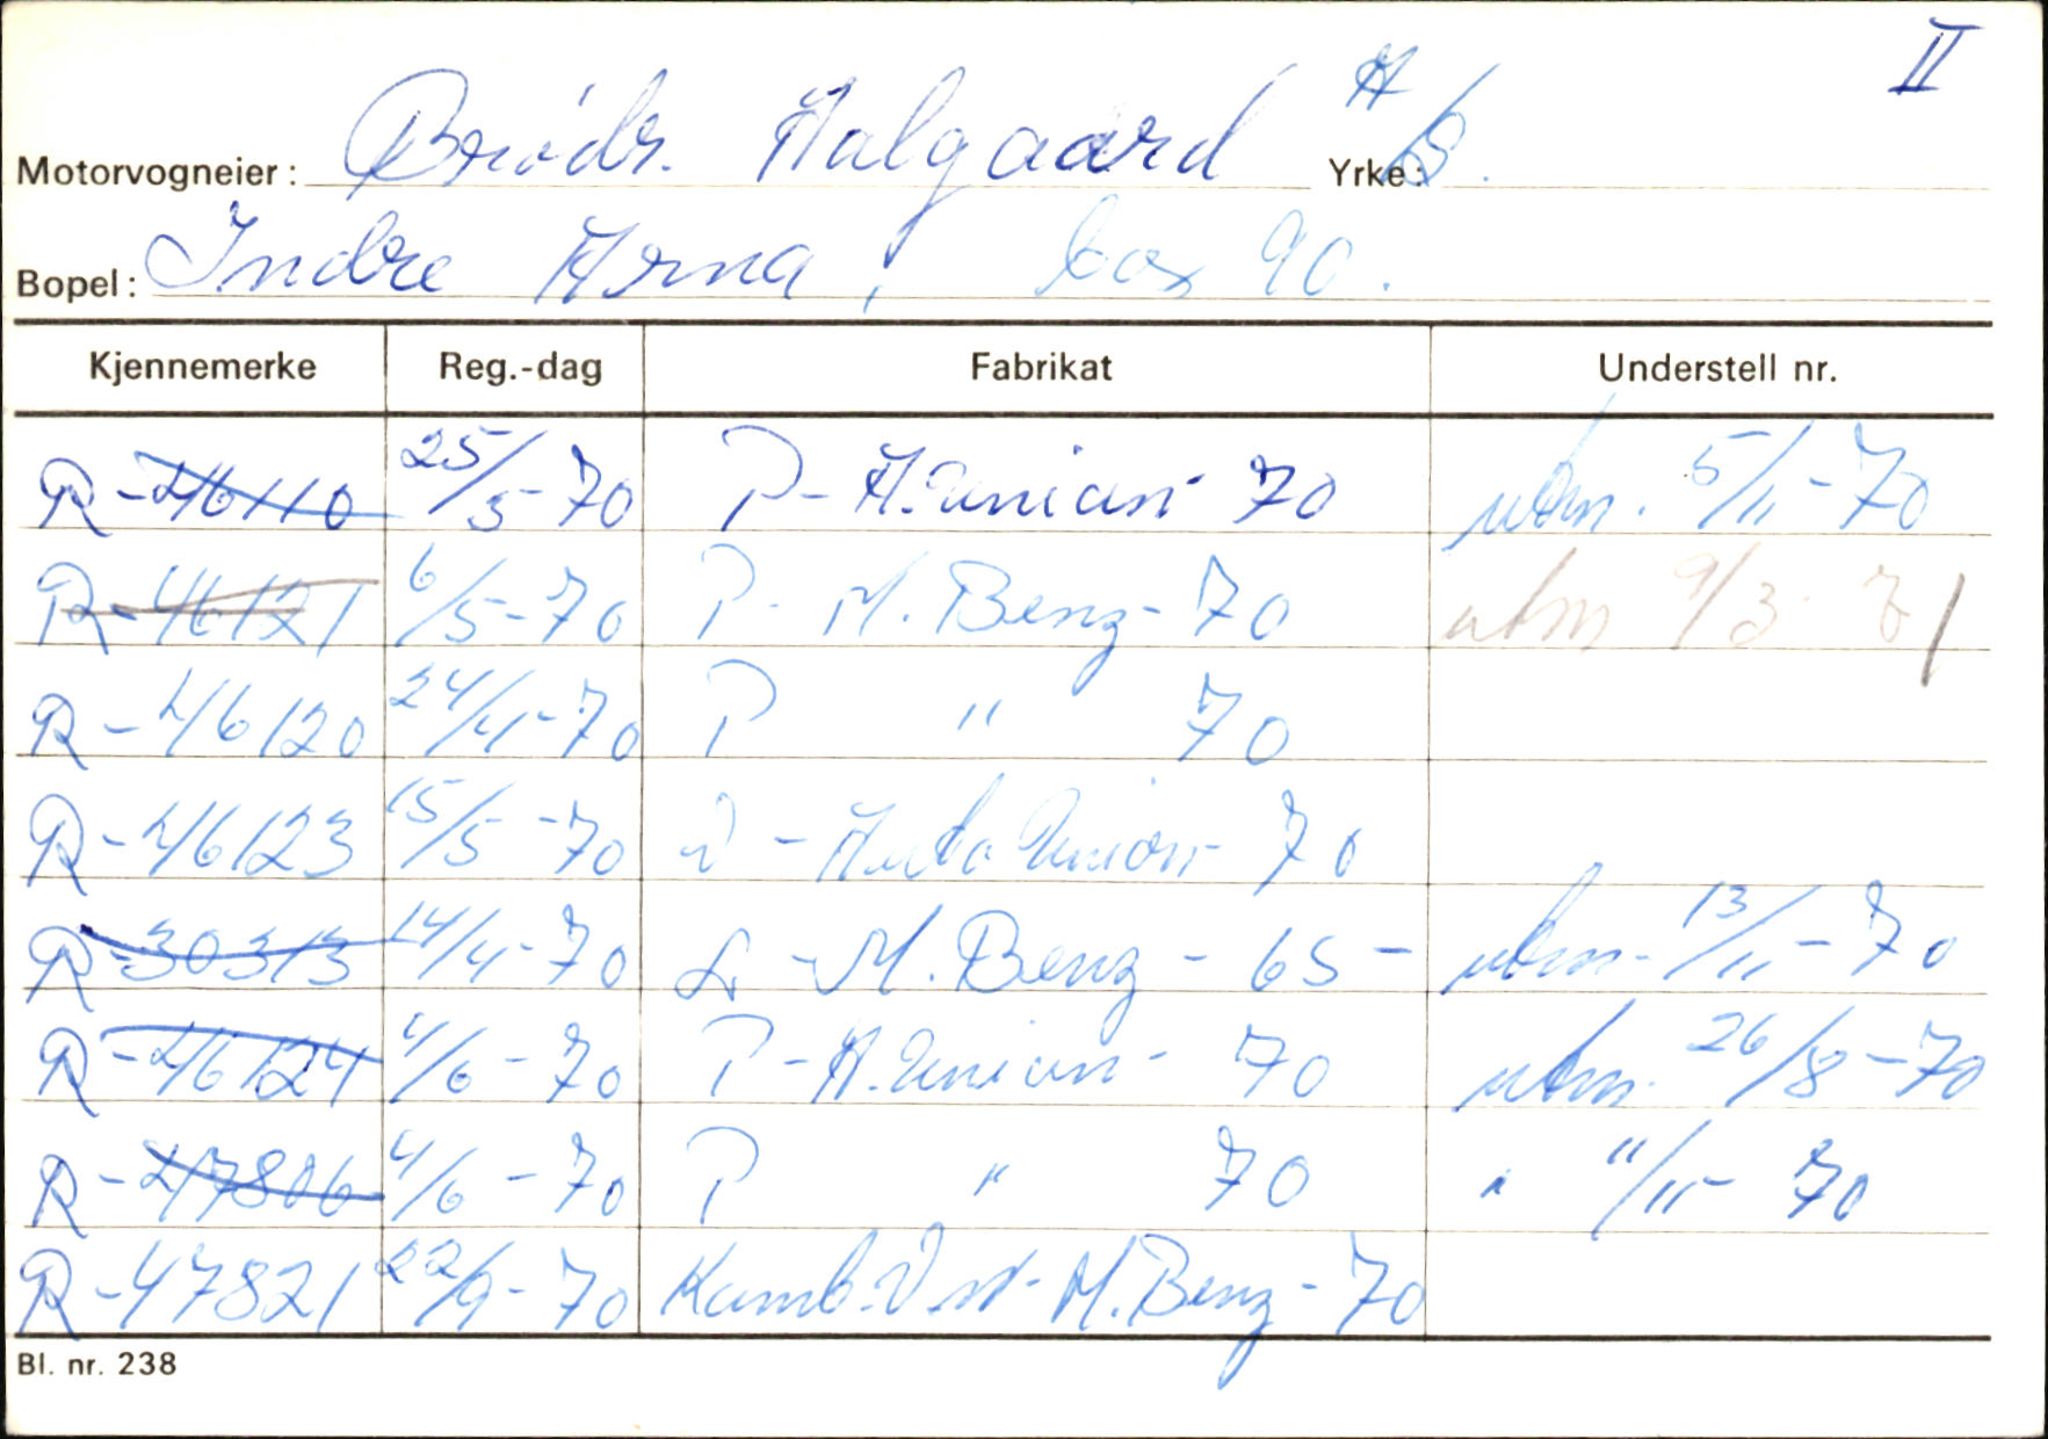 II
Motorvogneier: Brødr. Halgaard A/S. Yrke:
Bopel: Indre Arna, box 90.
Kjennemerke Reg.-dag Fabrikat Understell nr.
R-46110 25/3-70 P - A.Union 70 utm. 5/11-70
R-46121 6/5-70 P - M. Benz - 70 utm 9/3 71
R-46120 24/4-70 P " 70
R-46123 15/5-70 V - Auto Union 70
R-30313 14/4-70 L - M. Benz - 65 - utm. 13/11-70
R-46124 4/6-70 P - A.Union - 70 utm. 26/8-70
R-47806 4/6-70 P " 70 " 11/11-70
R-47821 22/9-70 Komb. M.Benz - 70
Bl. nr. 238